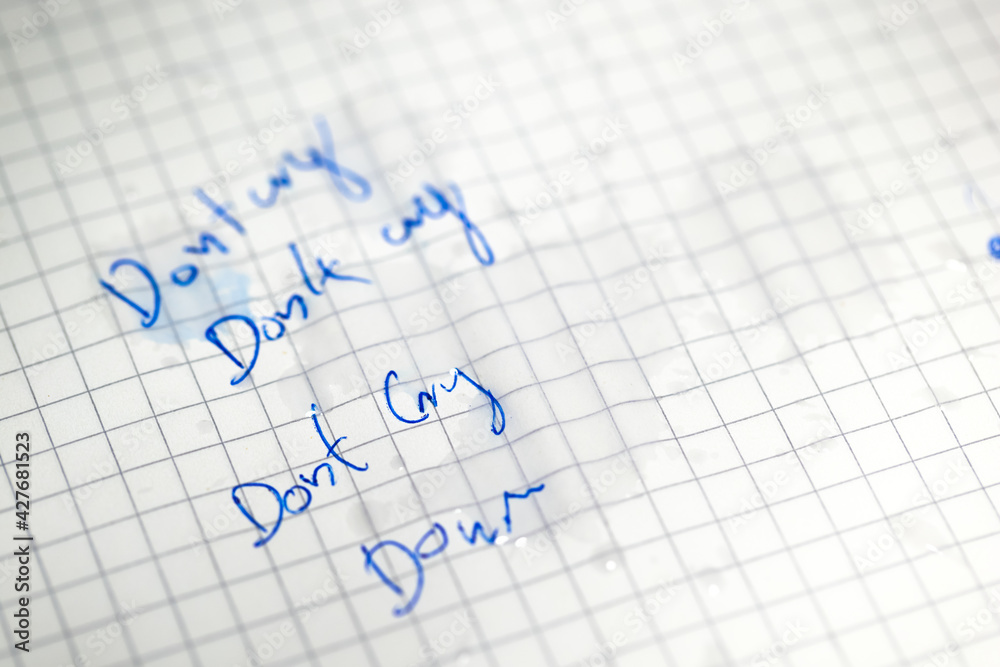 Dont cry
Dont cry
Dont Cry
Adobe Stock | #427681523